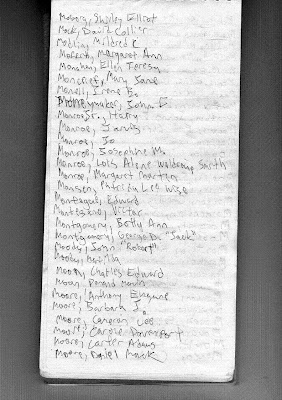 Moberg, Shirley Elliot
Mock, David Collier
Modlin, Mildred C
Moffett, Margaret Ann
Monahan, Ellen Teresa
Moncrief, Mary Jane
Monell, Irene B.
Moneymaker, John F.
Monroe Jr., Harry
Monroe, Jarvis
Monroe, Jo
Monroe, Josephine M.
Monroe, Lois Alene Waldroup Smith
Monroe, Margaret Martin
Monsen, Patricia Lee Wise
Montague, Edward
Montesano, Victor
Montgomery, Betty Ann
Montgomery, George Dr. "Jack"
Moody, John "Robert"
Moody,
Moon, Charles Edward
Moon, Donald
Moore, Anthony Eugune
Moore, Barbara J.
Moore, Cameron Lee
Moore, Carole Davenport
Moore, Carter Adams
Moore, Daniel Mack